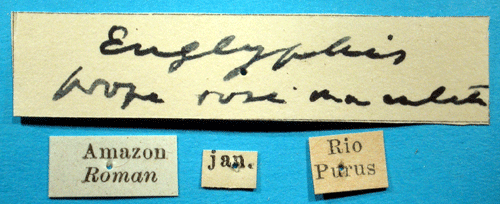 Euglyphis
prope rosimaculata
Amazon
Roman
jan.
Rio
Purus